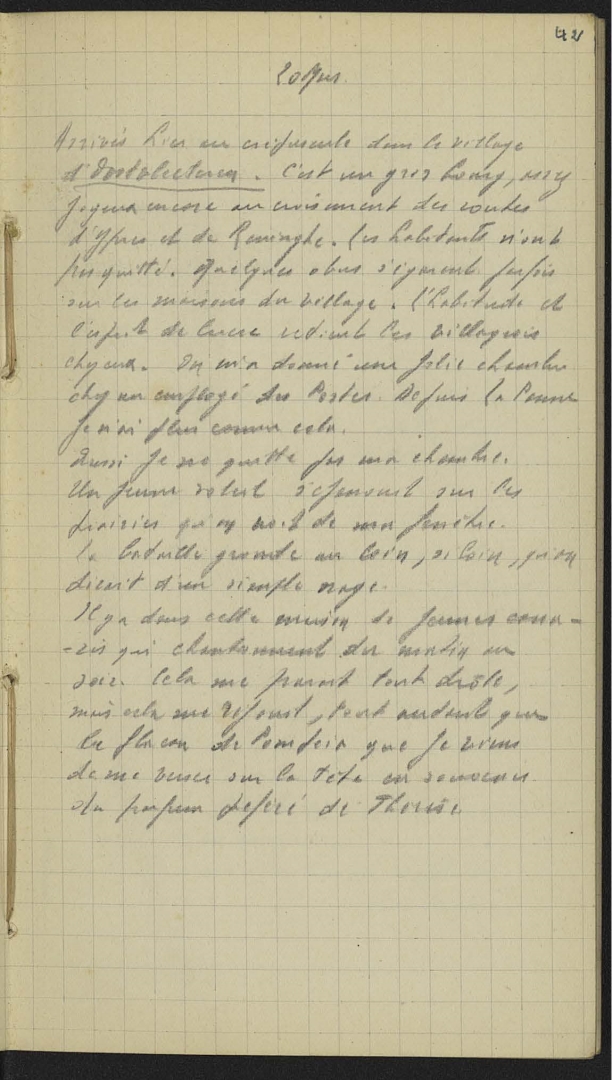 42
20 Mars.
Arrivés hier au crépuscule dans le village
d'Oostvleteren. C'est un gros bourg, assez
joyeux encore au croisement des routes
d'Ypres et de Reninghe. Les habitants n'ont
pas quitté. Quelques obus s'égarent parfois
sur les maisons du village. L'habitude et
l'esprit de lucre retient les villageois
chez eux. On m'a donné une jolie chambre
chez un employé des Postes. Depuis La Panne
je n'ai plus connu cela.
Aussi je ne quitte pas ma chambre.
Un jeune soleil s'épanouit sur les
prairies qu'on voit de ma fenêtre.
La bataille gronde au loin, si loin, qu'on
dirait d'un simple orage.
Il y a dans cette maison de jeunes cana-
-ris qui chantonnent du matin au
soir. Cela me parait tout drôle,
mais cela me réjouit, tout autant que
le flacon de Pompeia que je viens
de me verser sur la tête en souvenir
du parfum préféré de Thérèse